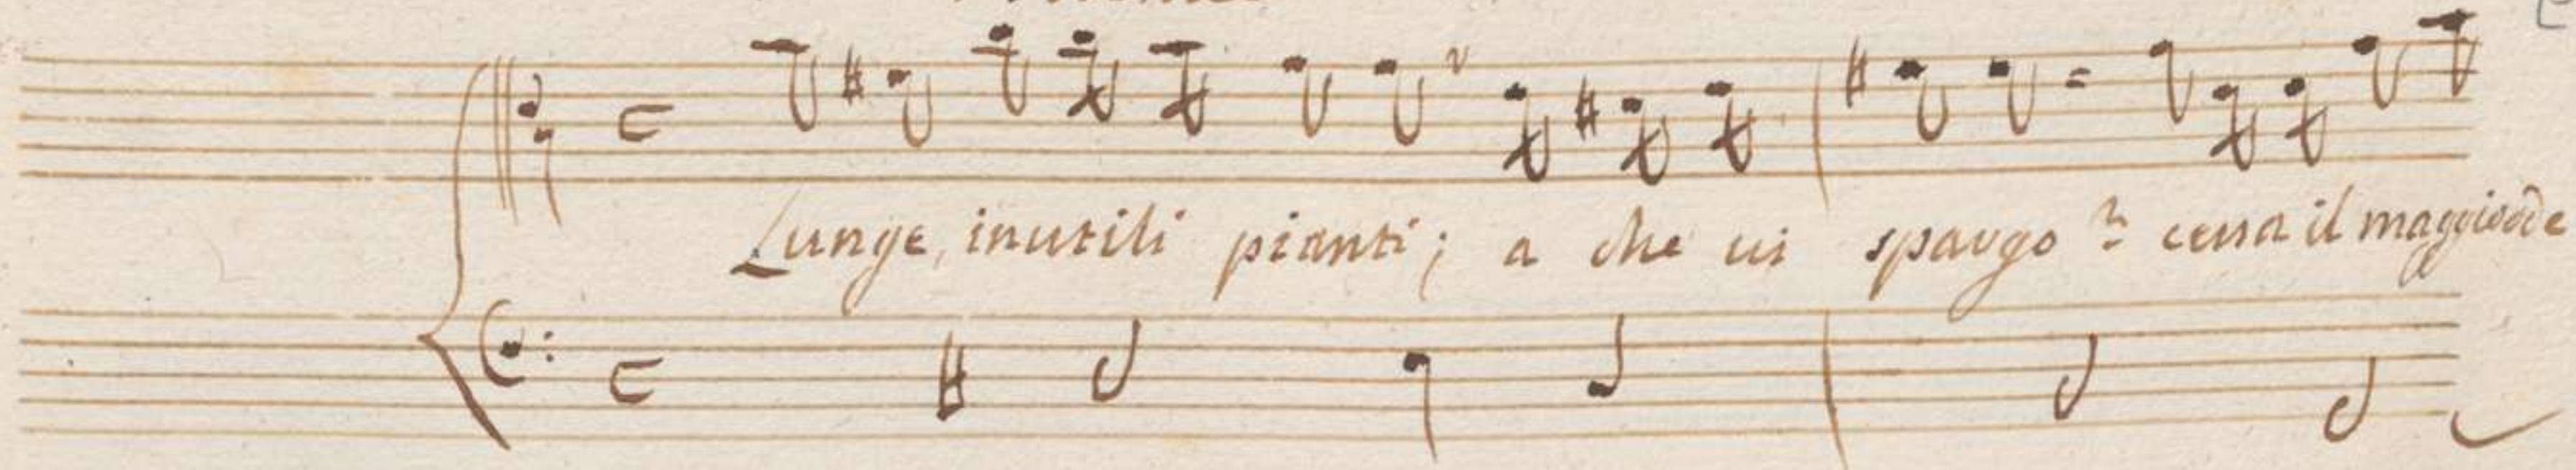 Lunge, inutili pianti; a che vi spargo? cessa il maggior de